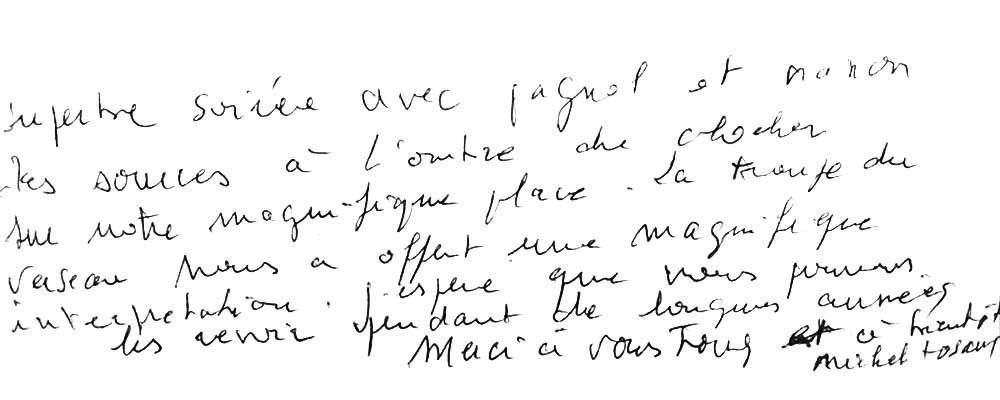 superbe soirée avec pagnol et manon
des sources à l'ombre du clocher
sur notre magnifique place. La troupe du
verseau nous a offert une magnifique
interpretation. j'espere que nous pourrons
les revoir pendant de longues années
Merci à vous tous et à bientôt
michel